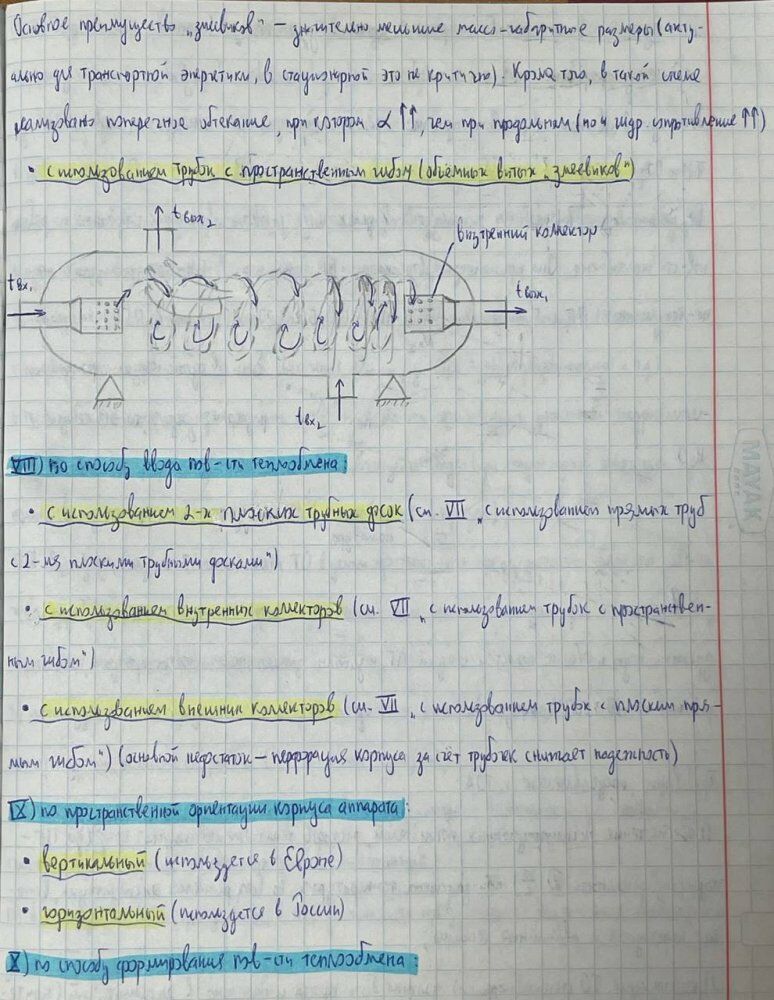 Основное преимущество „змеевиков" – значительно меньшие массо-габаритные размеры (акту-
ально для транспортной энергетики, в стационарной это не критично). Кроме того, в такой схеме
реализовано поперечное обтекание, при котором α ↑↑, чем при продольном (но и гидр. сопротивление ↑↑)
• с использованием трубок с пространственным гибом (объёмных витых „змеевиков")
tвых2
внутренний коллектор
tвх1
tвых1
tвх2
VIII) по способу ввода пов-сти теплообмена:
• с использованием 2-х плоских трубных досок (см. VII „с использованием прямых труб
с 2-мя плоскими трубными досками")
• с использованием внутренних коллекторов (см. VII „с использованием трубок с пространствен-
ным гибом")
• с использованием внешних коллекторов (см. VII „с использованием трубок с плоским пря-
мым гибом") (основной недостаток – перфорация корпуса за счёт трубок снижает надежность)
IX) по пространственной ориентации корпуса аппарата:
• вертикальный (используется в Европе)
• горизонтальный (используется в России)
X) по способу формирования пов-сти теплообмена:
MAYAK